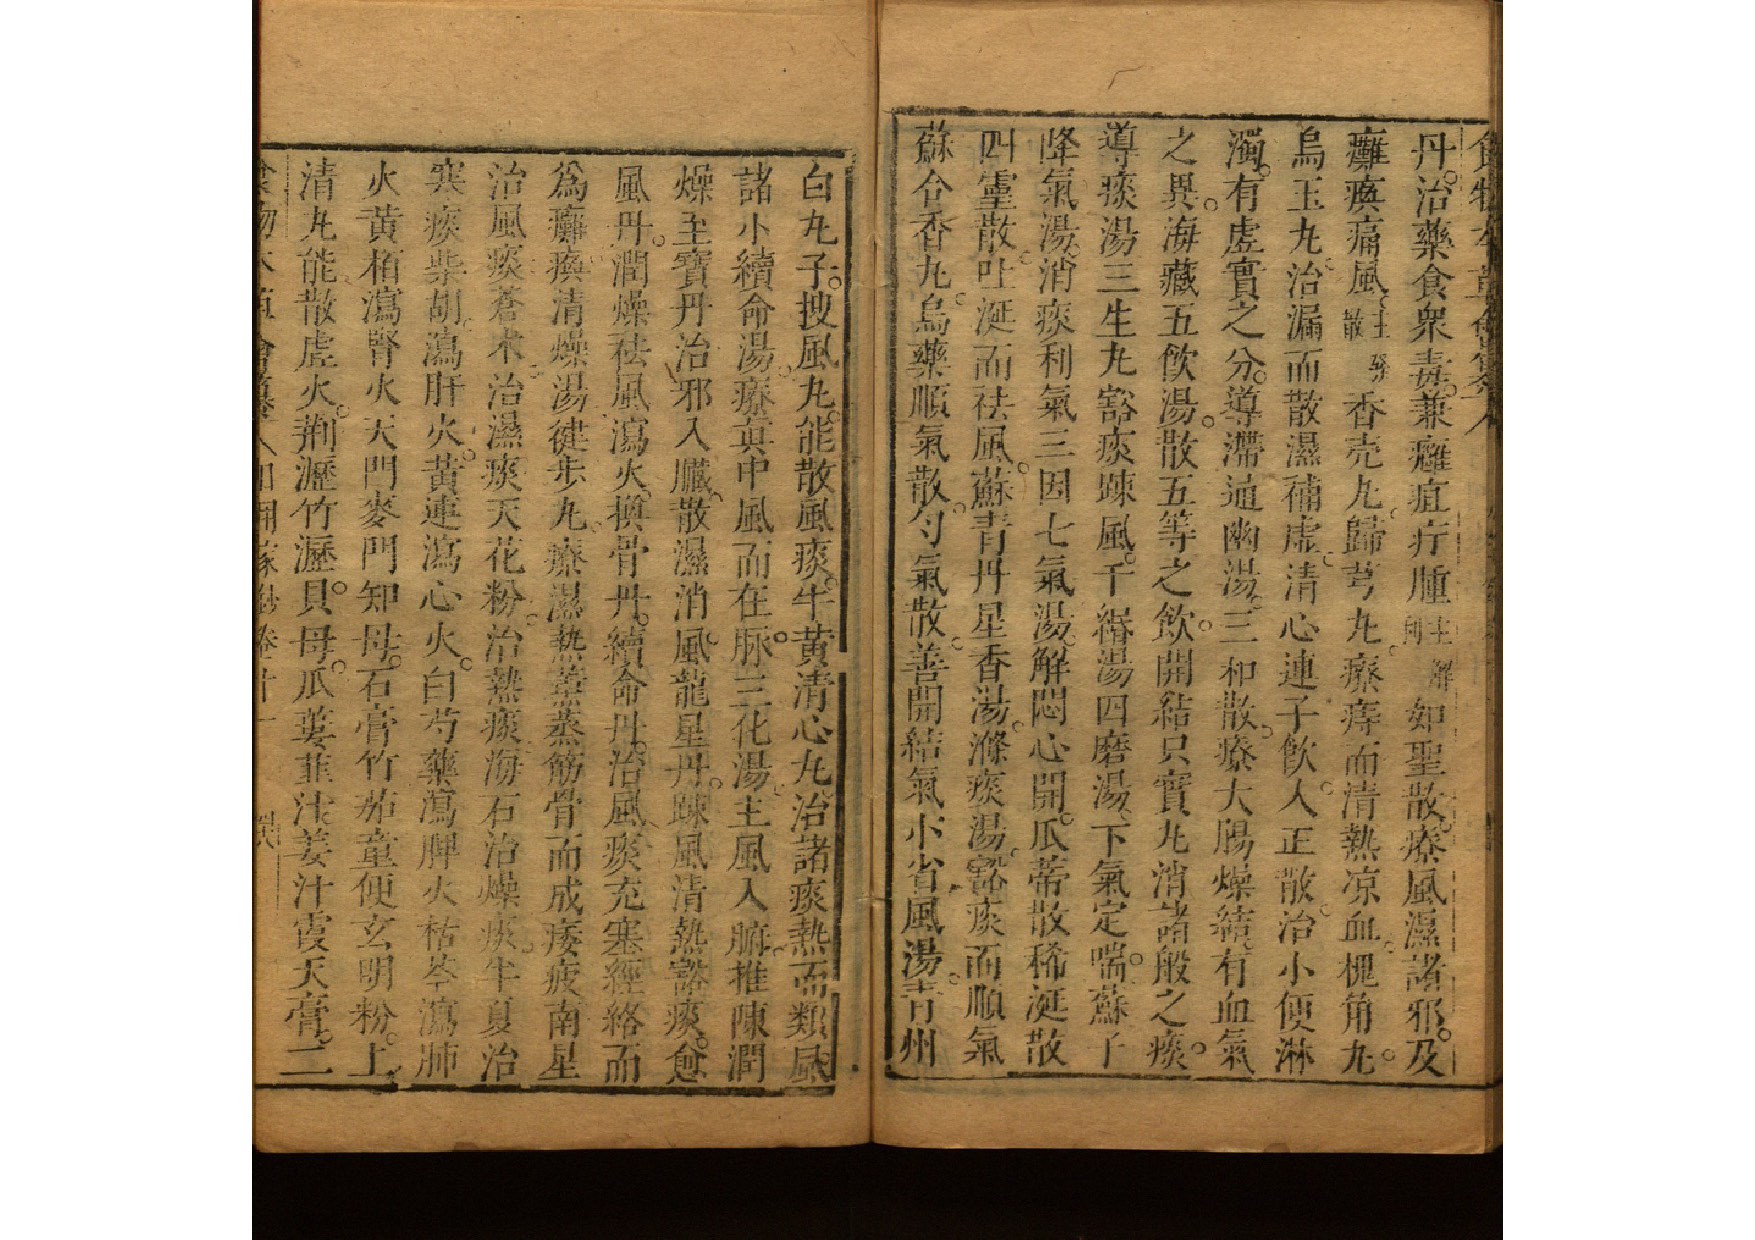 食物本草會纂八
丹。治藥食衆毒。兼癰疽疔腫如聖散。療風濕諸邪。及
癱瘓痛風、香壳丸。歸芎丸。療痔而清熱凉血。槐角丸。
烏玉丸。治漏而散濕補虛。清心連子飲。人正散。治小便淋
濁。有虛實之分。導滯通幽湯。三和散。療大腸燥結。有血氣
之異。海藏五飲湯。散五等之飲。開結只實丸消諸般之痰。
導痰湯三生丸豁痰踈風。千緡湯四磨湯、下氣定喘。蘇子
降氣湯、消痰利氣三因七氣湯。解悶心開。瓜蒂散稀涎散
四靈散。吐涎而祛風。蘇青丹星香湯。滌痰湯。豁痰而順氣
蘇合香丸。烏藥順氣散。勻氣散。善開結氣小省風湯。青州
白丸子。搜風丸。能散風痰。牛黃清心丸治諸痰熱而類風
諸小續命湯。療真中風而在脉。三化湯。主風入腑。推陳潤
燥至寶丹治邪入臟。散濕消風龍星丹。踈風清熱豁痰。愈
風丹。潤燥祛風瀉火。換骨丹。續命丹。治風痰充塞經絡而
爲癱瘓清燥湯健步丸。療濕熱薰蒸筋骨而成痿疲南星
治風痰蒼朮。治濕痰天花粉。治熱痰海石治燥痰。半夏治
寒痰柴胡。瀉肝火。黃連瀉心火。白芍藥瀉脾火枯芩瀉肺
火黃栢瀉腎火天門麥門知母。石膏竹茹童便玄明粉。上
清丸能散虛火。荆瀝竹瀝。貝母。瓜蔞韮汁姜汁霞天膏。二
食物本草會纂八日用家鈔卷十一